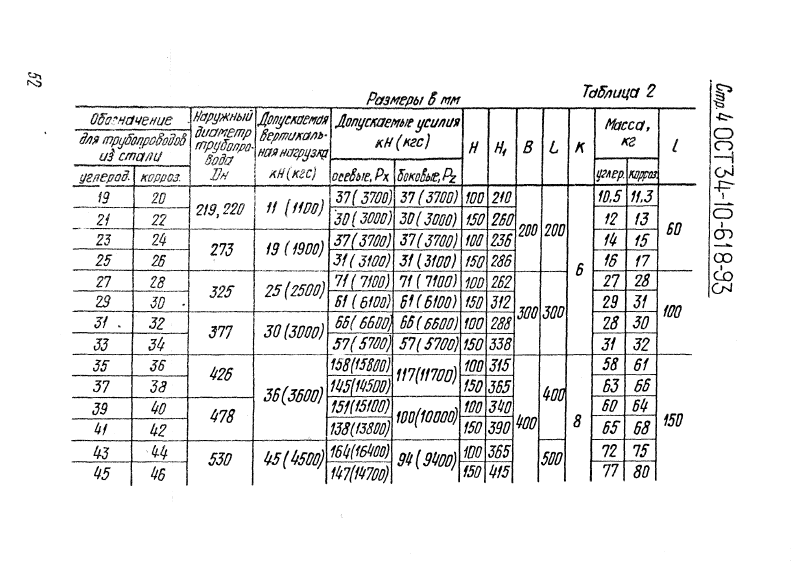 52
Стр. 4 ОСТ 34-10-618-93
Размеры в мм
Таблица 2
Обозначение для трубопроводов из стали | Наружный диаметр трубопровода Dн | Допускаемая вертикальная нагрузка кН (кгс) | Допускаемые усилия кН (кгс) | H | H₁ | B | L | K | Масса, кг | l
углерод. | корроз. | осевые, Pх | боковые, Pz | углер. | корроз.
19 | 20 | 219, 220 | 11 (1100) | 37 (3700) | 37 (3700) | 100 | 210 | 200 | 200 | 6 | 10,5 | 11,3 | 60
21 | 22 | 30 (3000) | 30 (3000) | 150 | 260 | 12 | 13
23 | 24 | 273 | 19 (1900) | 37 (3700) | 37 (3700) | 100 | 236 | 14 | 15
25 | 26 | 31 (3100) | 31 (3100) | 150 | 286 | 16 | 17
27 | 28 | 325 | 25 (2500) | 71 (7100) | 71 (7100) | 100 | 262 | 300 | 300 | 27 | 28 | 100
29 | 30 | 61 (6100) | 61 (6100) | 150 | 312 | 29 | 31
31 | 32 | 377 | 30 (3000) | 66 (6600) | 66 (6600) | 100 | 288 | 28 | 30
33 | 34 | 57 (5700) | 57 (5700) | 150 | 338 | 31 | 32
35 | 36 | 426 | 36 (3600) | 158 (15800) | 117 (11700) | 100 | 315 | 400 | 400 | 8 | 58 | 61 | 150
37 | 38 | 145 (14500) | 150 | 365 | 63 | 66
39 | 40 | 478 | 151 (15100) | 100 (10000) | 100 | 340 | 60 | 64
41 | 42 | 138 (13800) | 150 | 390 | 65 | 68
43 | 44 | 530 | 45 (4500) | 164 (16400) | 94 (9400) | 100 | 365 | 500 | 72 | 75
45 | 46 | 147 (14700) | 150 | 415 | 77 | 80